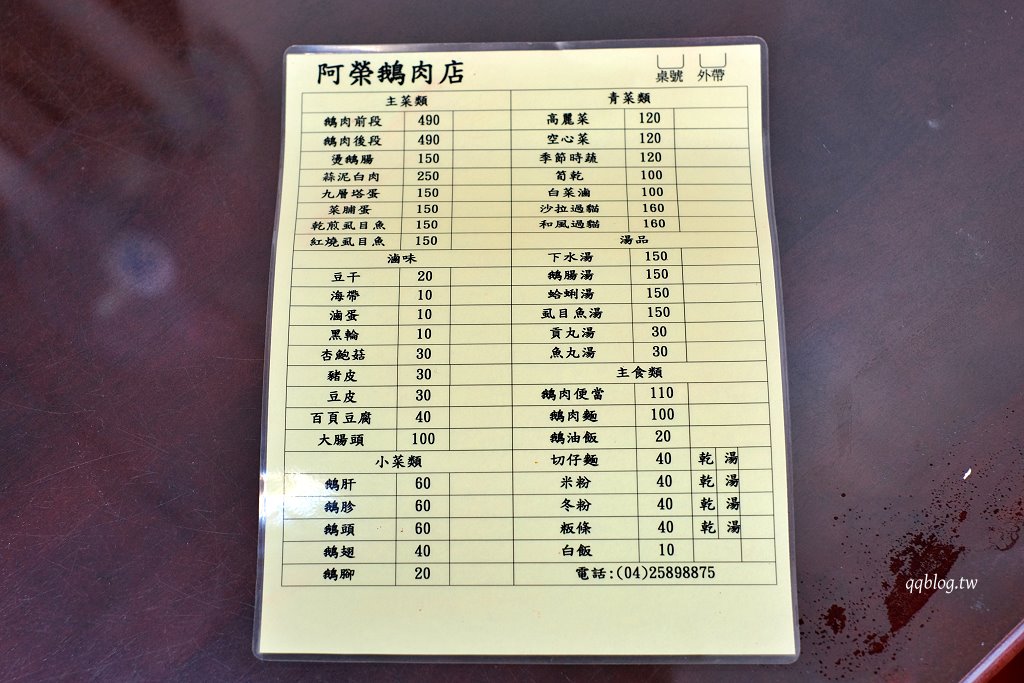 阿榮鵝肉店
桌號 外帶
主菜類
鵝肉前段 490
鵝肉後段 490
燙鵝腸 150
蒜泥白肉 250
九層塔蛋 150
菜脯蛋 150
乾煎虱目魚 150
紅燒虱目魚 150
滷味
豆干 20
海帶 10
滷蛋 10
黑輪 10
杏鮑菇 30
豬皮 30
豆皮 30
百頁豆腐 40
大腸頭 100
小菜類
鵝肝 60
鵝胗 60
鵝頭 60
鵝翅 40
鵝腳 20
青菜類
高麗菜 120
空心菜 120
季節時蔬 120
筍乾 100
白菜滷 100
沙拉過貓 160
和風過貓 160
湯品
下水湯 150
鵝腸湯 150
蛤蜊湯 150
虱目魚湯 150
貢丸湯 30
魚丸湯 30
主食類
鵝肉便當 110
鵝肉麵 100
鵝油飯 20
切仔麵 40 乾 湯
米粉 40 乾 湯
冬粉 40 乾 湯
粄條 40 乾 湯
白飯 10
電話:(04)25898875
qqblog.tw